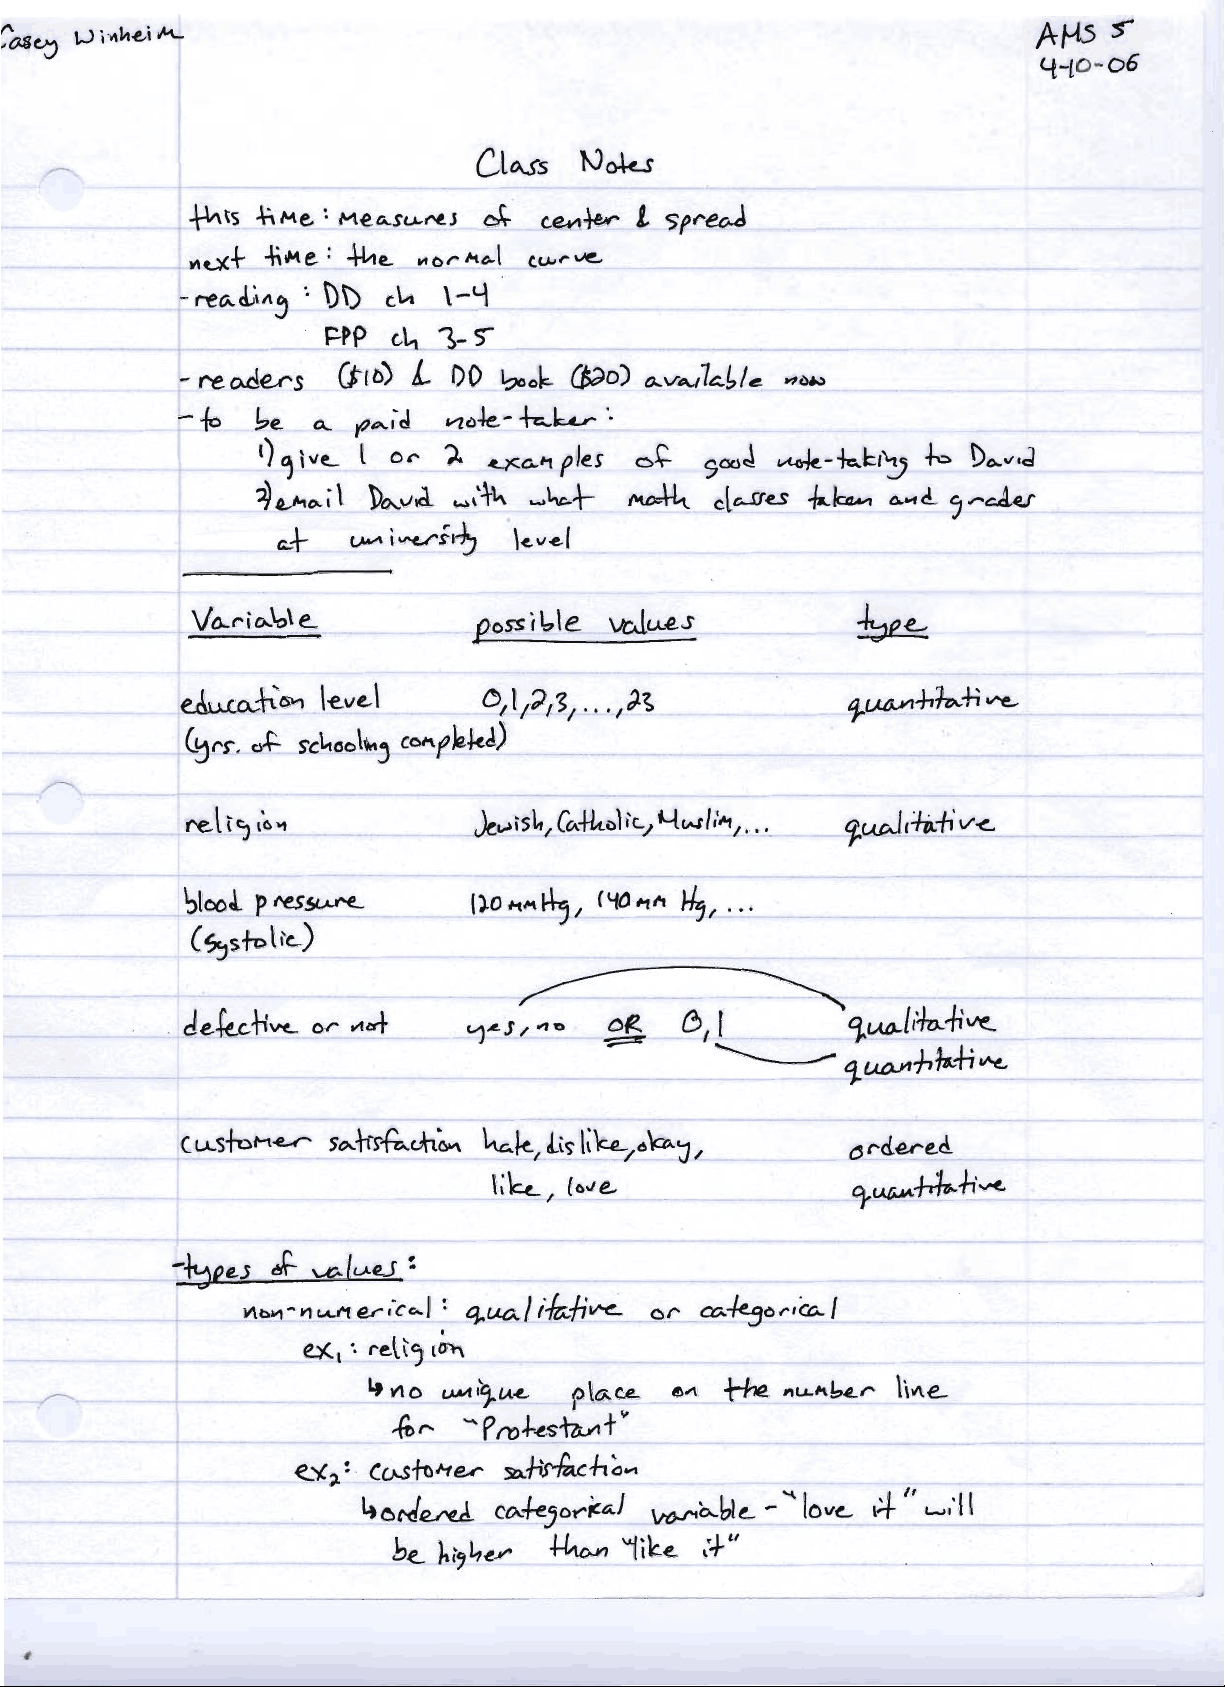 Casey Winheim
AMS 5
4-10-06
Class Notes
this time: measures of center & spread
next time: the normal curve
-reading: DD ch 1-4
FPP ch 3-5
-readers ($10) & DD book ($20) available now
-to be a paid note-taker:
1) give 1 or 2 examples of good note-taking to David
2) email David with what math classes taken and grades
at university level
Variable possible values type
education level 0,1,2,3,...,23 quantitative
(yrs. of schooling completed)
religion Jewish, Catholic, Muslim,... qualitative
blood pressure 120 mmHg, 140 mm Hg,...
(systolic)
defective or not yes, no OR 0,1 qualitative
quantitative
customer satisfaction hate, dislike, okay, ordered
like, love quantitative
-types of values:
non-numerical: qualitative or categorical
ex₁: religion
↳no unique place on the number line
for "Protestant"
ex₂: customer satisfaction
↳ordered categorical variable - "love it" will
be higher than "like it"